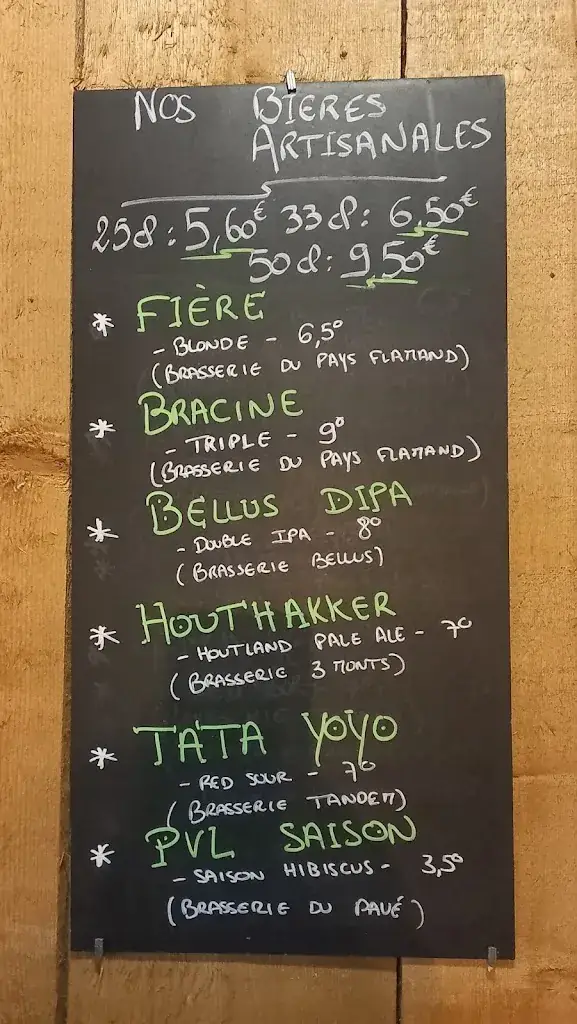 NOS BIERES
ARTISANALES
25cl : 5,60€ 33cl : 6,50€
50cl : 9,50€
* FIÈRE
- BLONDE - 6,5°
(BRASSERIE DU PAYS FLAMAND)
* BRACINE
- TRIPLE - 9°
(BRASSERIE DU PAYS FLAMAND)
* BELLUS DIPA
- DOUBLE IPA - 8°
(BRASSERIE BELLUS)
* HOUTHAKKER
- HOUTLAND PALE ALE - 7°
(BRASSERIE 3 MONTS)
* TATA YOYO
- RED SOUR - 7°
(BRASSERIE TANDEM)
* PVL SAISON
- SAISON HIBISCUS - 3,5°
(BRASSERIE DU PAVÉ)